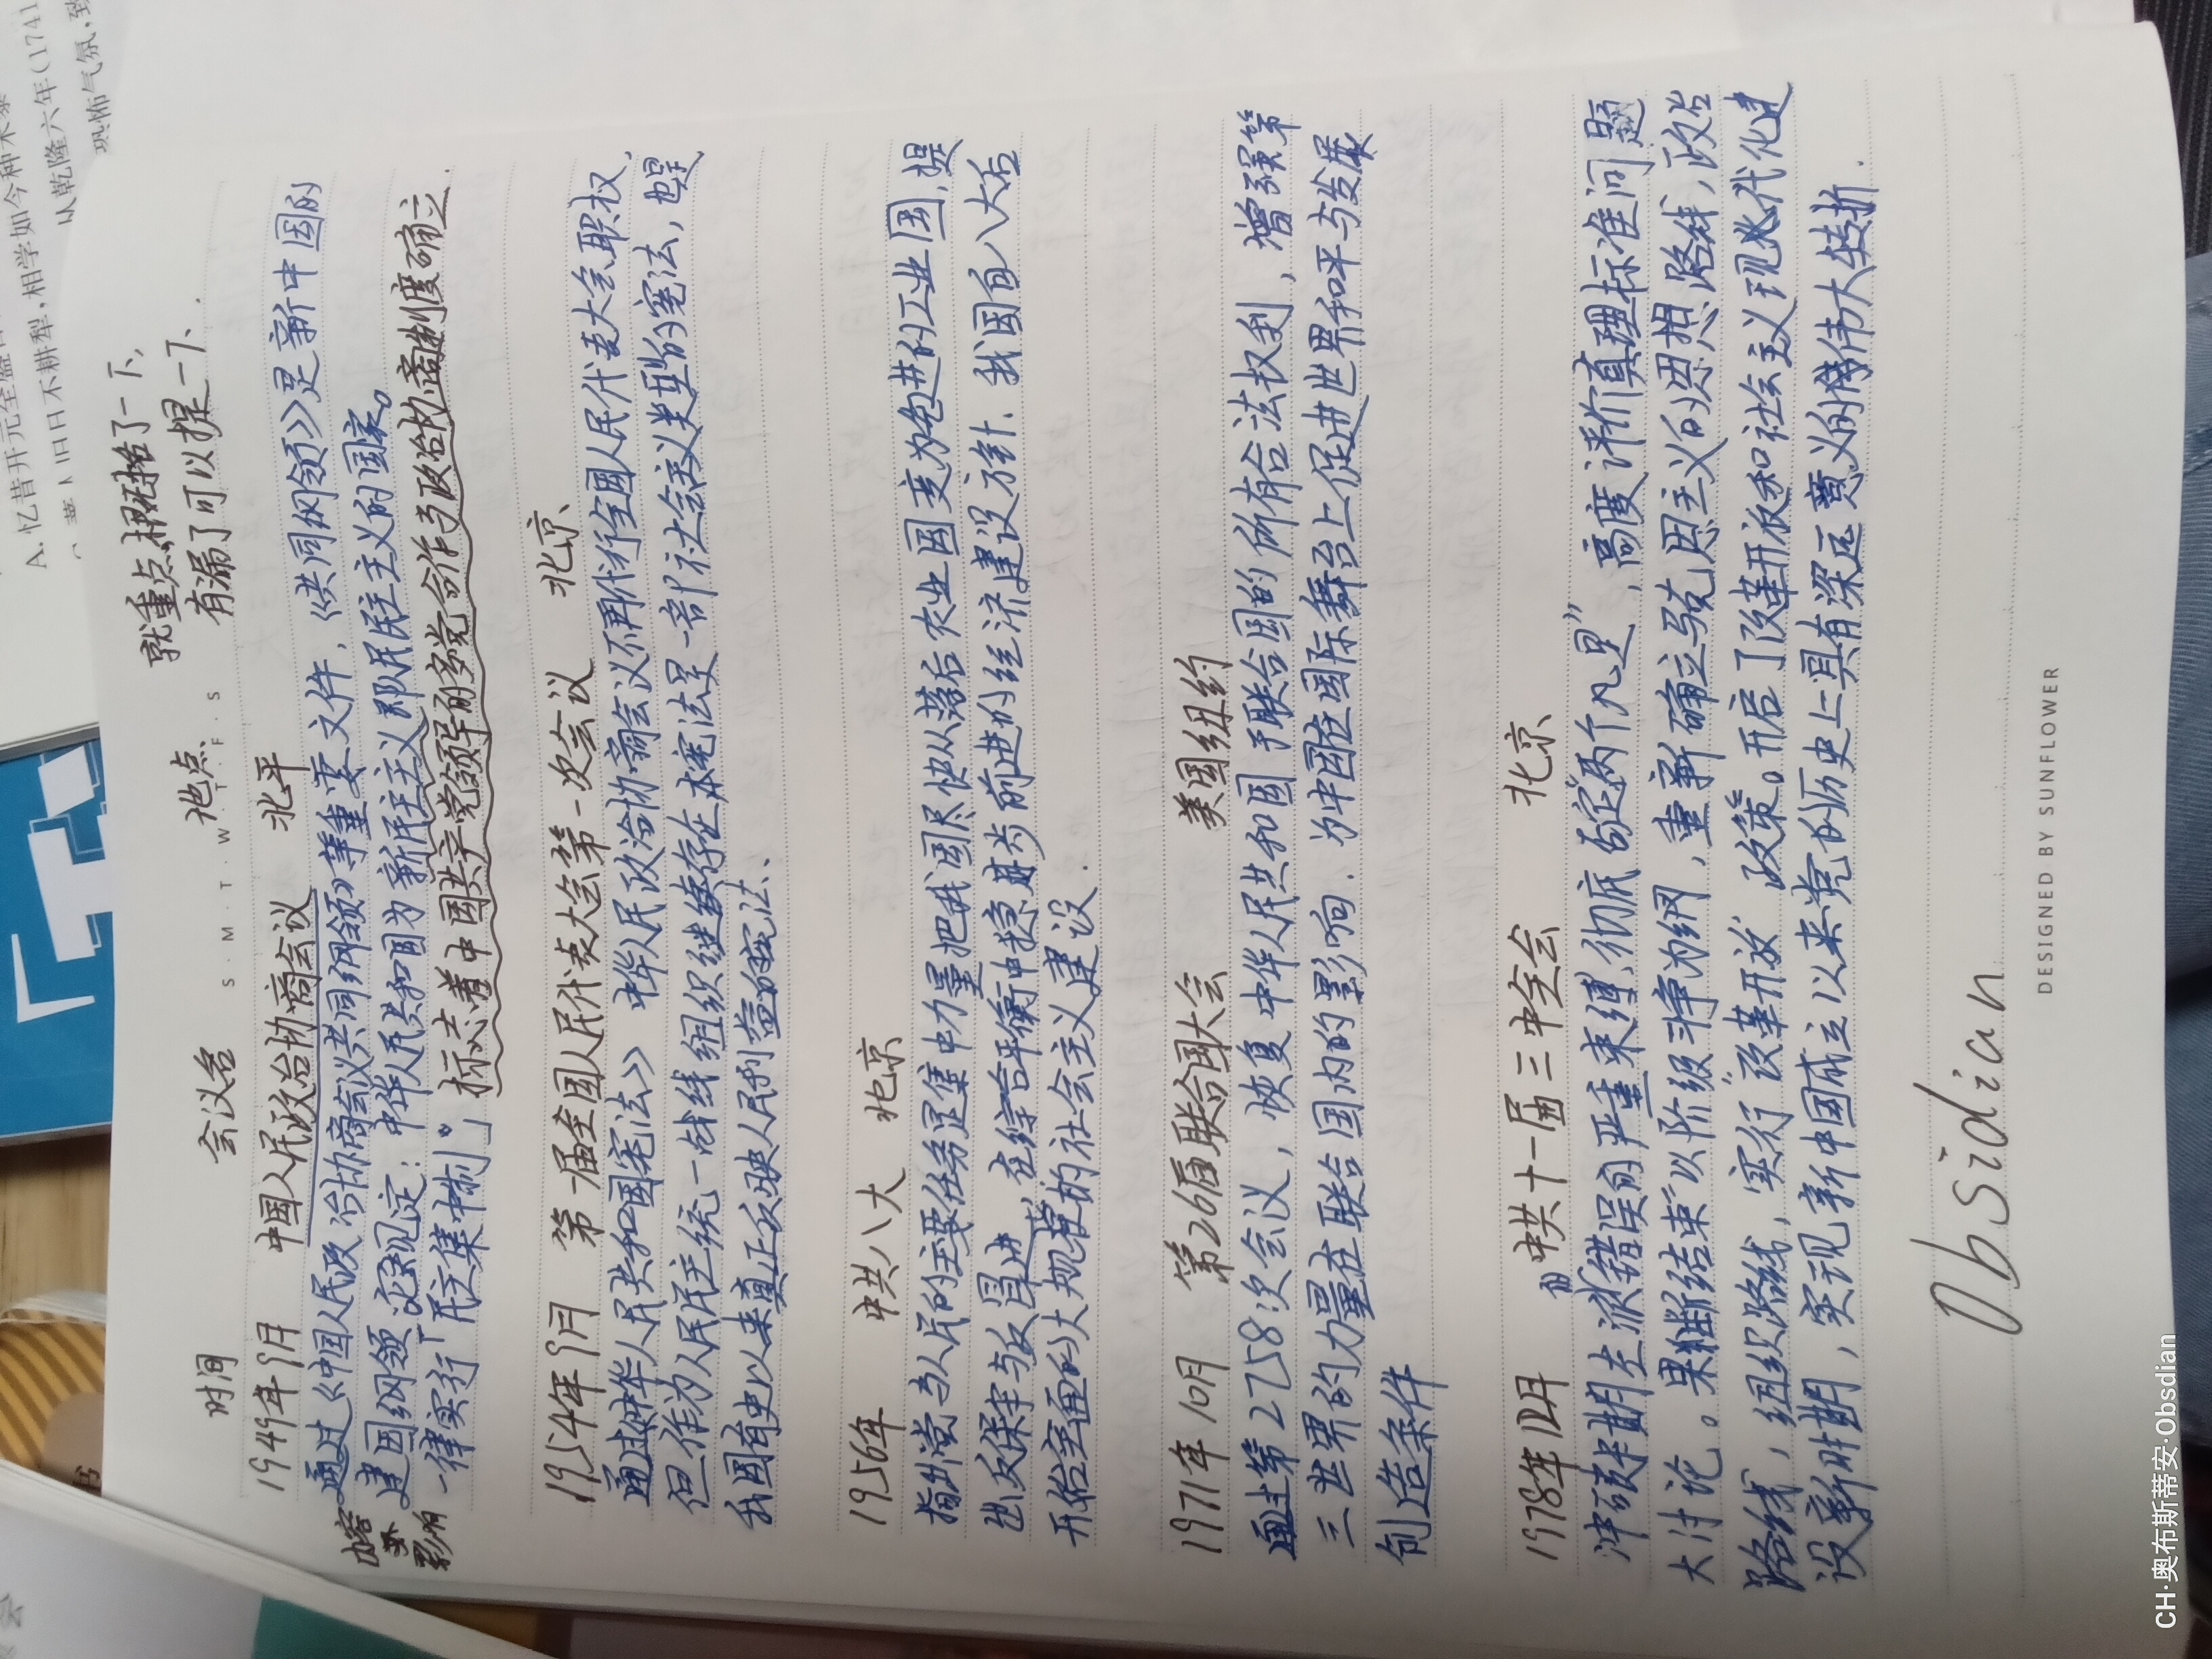 就重点概括了一下，
有漏了可以提一下、
时间 会议名 地点
S · M · T · W · T · F · S
1949年9月 中国人民政治协商会议 北平
内容
影响
通过《中国人民政治协商会议共同纲领》等重要文件，《共同纲领》是新中国的
建国纲领 规定：中华人民共和国为新民主主义即人民民主主义的国家。
一律实行「民主集中制」。标志着中国共产党领导的多党合作与政治协商制度确立.
1954年9月 第一届全国人民代表大会第一次会议 北京
通过《中华人民共和国宪法》 中华人民政治协商会议不再代行全国人民代表大会职权，
但作为人民民主统一战线组织继续存在 本宪法是一部社会主义类型的宪法，也是
我国有史以来真正反映人民利益的宪法、
1956年 中共八大 北京
指出党与人民的主要任务是集中力量把我国尽快从落后农业国变为先进的工业国，提
出反保守与反冒进，在综合平衡中稳步前进的经济建设方针. 我国自八大后
开始全面的大规模的社会主义建设.
1971年10月 第26届联合国大会 美国纽约
通过第2758次会议，恢复中华人民共和国于联合国的所有合法权利，增强第
三世界的力量在联合国内的影响. 为中国在国际舞台上促进世界和平与发展
创造条件
1978年12月 中共十一届三中全会 北京
冲破长期左派错误的严重束缚，彻底否定"两个凡是"，高度评价真理标准问题
大讨论。果断结束"以阶级斗争为纲，重新确立马克思主义的思想路线，政治
路线，组织路线，实行"改革开放"政策。开启了改革开放和社会主义现代化建
设新时期，实现新中国成立以来党的历史上具有深远意义的伟大转折.
Obsidian
DESIGNED BY SUNFLOWER
CH·奥布斯蒂安·Obsdian
A.忆昔开元全盛日
旧日不耕犁，相学如今种禾黍
从乾隆六年(1741
恐怖气氛，致
书